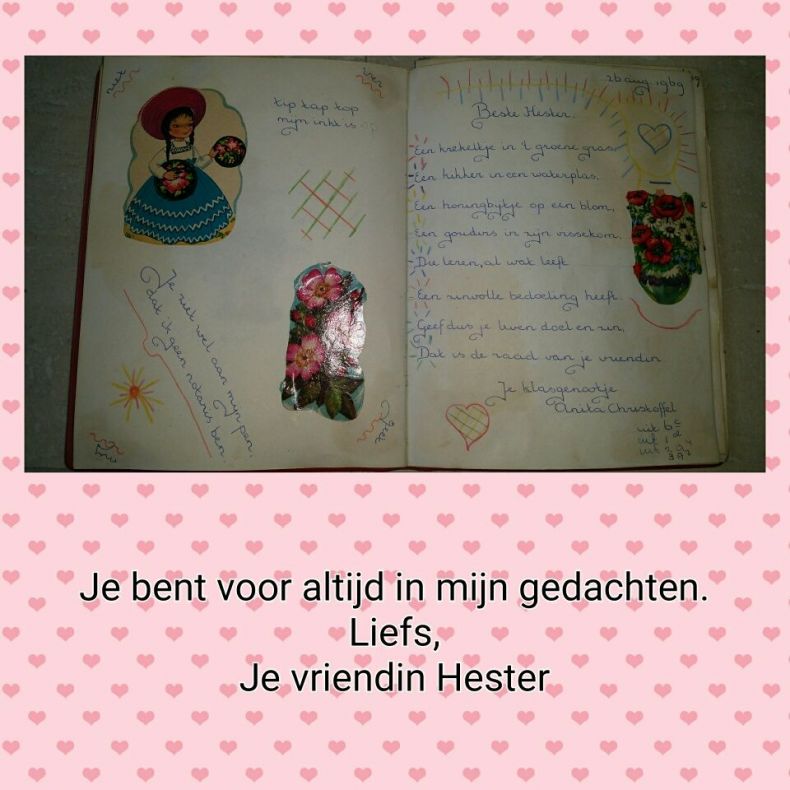 niet
ver
tip tap top
mijn inkt is op
Je ziet wel aan mijn pen.
dat ik geen notaris ben.
geet
26 aug. 1969
Beste Hester.
Een krekeltje in 't groene gras
Een kikker in een waterplas.
Een honingbijtje op een blom,
Een goudvis in zijn vissekom,
Die leren, al wat leeft
Een zinvolle bedoeling heeft.
Geef dus je leven doel en zin,
Dat is de raad van je vriendin
Je klasgenootje
Anita Christoffel
uit 6
Je bent voor altijd in mijn gedachten.
Liefs,
Je vriendin Hester